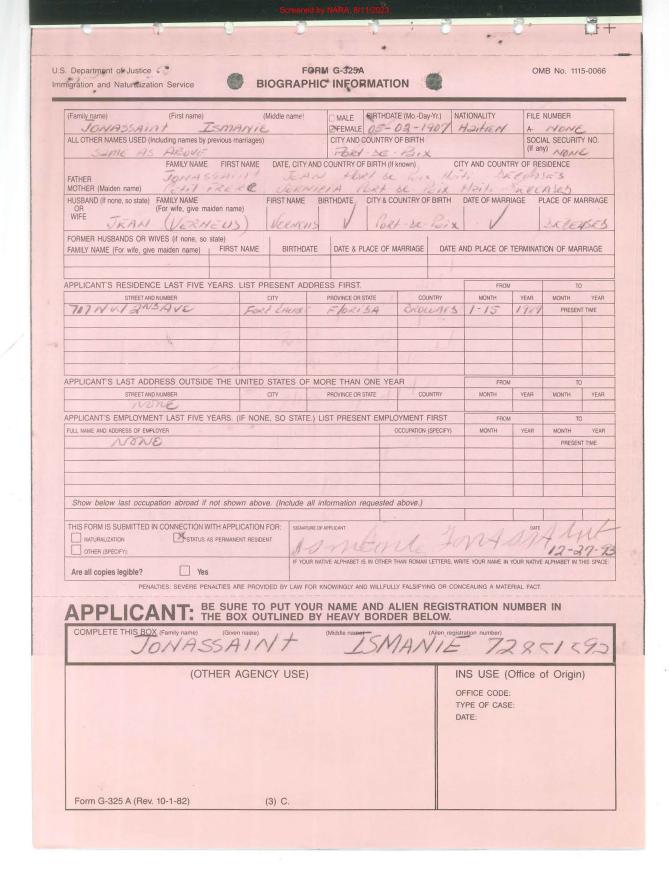 Screened by NARA, 8/11/2023
U.S. Department of Justice
Immigration and Naturalization Service
FORM G-325A
BIOGRAPHIC INFORMATION
OMB No. 1115-0066
(Family name) (First name) (Middle name) MALE FEMALE BIRTHDATE (Mo.-Day-Yr.) NATIONALITY FILE NUMBER
JONASSAINT ISMANIE 05-02-1907 HAITIEN A- NONE
ALL OTHER NAMES USED (Including names by previous marriages) CITY AND COUNTRY OF BIRTH SOCIAL SECURITY NO. (If any)
SAME AS ABOVE PORT-DE-PAIX NONE
FAMILY NAME FIRST NAME DATE, CITY AND COUNTRY OF BIRTH (If known) CITY AND COUNTRY OF RESIDENCE
FATHER JONASSAINT JEAN PORT DE PAIX HAITI
MOTHER (Maiden name) PETIT FRERE PORT DE PAIX HAITI
HUSBAND (If none, so state) OR WIFE FAMILY NAME (For wife, give maiden name) FIRST NAME BIRTHDATE CITY & COUNTRY OF BIRTH DATE OF MARRIAGE PLACE OF MARRIAGE
JEAN (VERNEUS) VERNEUS PORT-DE-PAIX
FORMER HUSBANDS OR WIVES (if none, so state)
FAMILY NAME (For wife, give maiden name) FIRST NAME BIRTHDATE DATE & PLACE OF MARRIAGE DATE AND PLACE OF TERMINATION OF MARRIAGE
APPLICANT'S RESIDENCE LAST FIVE YEARS. LIST PRESENT ADDRESS FIRST. FROM TO
STREET AND NUMBER CITY PROVINCE OR STATE COUNTRY MONTH YEAR MONTH YEAR
2ND AVE FORT FLORIDA 1-15 PRESENT TIME
APPLICANT'S LAST ADDRESS OUTSIDE THE UNITED STATES OF MORE THAN ONE YEAR FROM TO
STREET AND NUMBER CITY PROVINCE OR STATE COUNTRY MONTH YEAR MONTH YEAR
NONE
APPLICANT'S EMPLOYMENT LAST FIVE YEARS. (IF NONE, SO STATE.) LIST PRESENT EMPLOYMENT FIRST FROM TO
FULL NAME AND ADDRESS OF EMPLOYER OCCUPATION (SPECIFY) MONTH YEAR MONTH YEAR
NONE PRESENT TIME
Show below last occupation abroad if not shown above. (Include all information requested above.)
THIS FORM IS SUBMITTED IN CONNECTION WITH APPLICATION FOR: SIGNATURE OF APPLICANT DATE
NATURALIZATION X STATUS AS PERMANENT RESIDENT
OTHER (SPECIFY): 12-27-93
IF YOUR NATIVE ALPHABET IS IN OTHER THAN ROMAN LETTERS, WRITE YOUR NAME IN YOUR NATIVE ALPHABET IN THIS SPACE:
Are all copies legible? Yes
PENALTIES: SEVERE PENALTIES ARE PROVIDED BY LAW FOR KNOWINGLY AND WILLFULLY FALSIFYING OR CONCEALING A MATERIAL FACT.
APPLICANT: BE SURE TO PUT YOUR NAME AND ALIEN REGISTRATION NUMBER IN
THE BOX OUTLINED BY HEAVY BORDER BELOW.
COMPLETE THIS BOX (Family name) (Given name) (Middle name) (Alien registration number)
JONASSAINT ISMANIE
(OTHER AGENCY USE) INS USE (Office of Origin)
OFFICE CODE:
TYPE OF CASE:
DATE:
Form G-325 A (Rev. 10-1-82) (3) C.